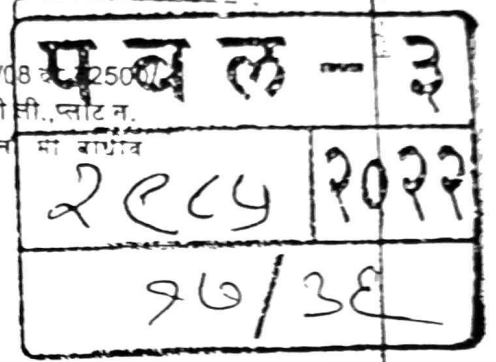 पवल - ३
08 2500/
सी.,प्लॉट न.
मी बांधीव
२९८५ २०२२
१७/३६